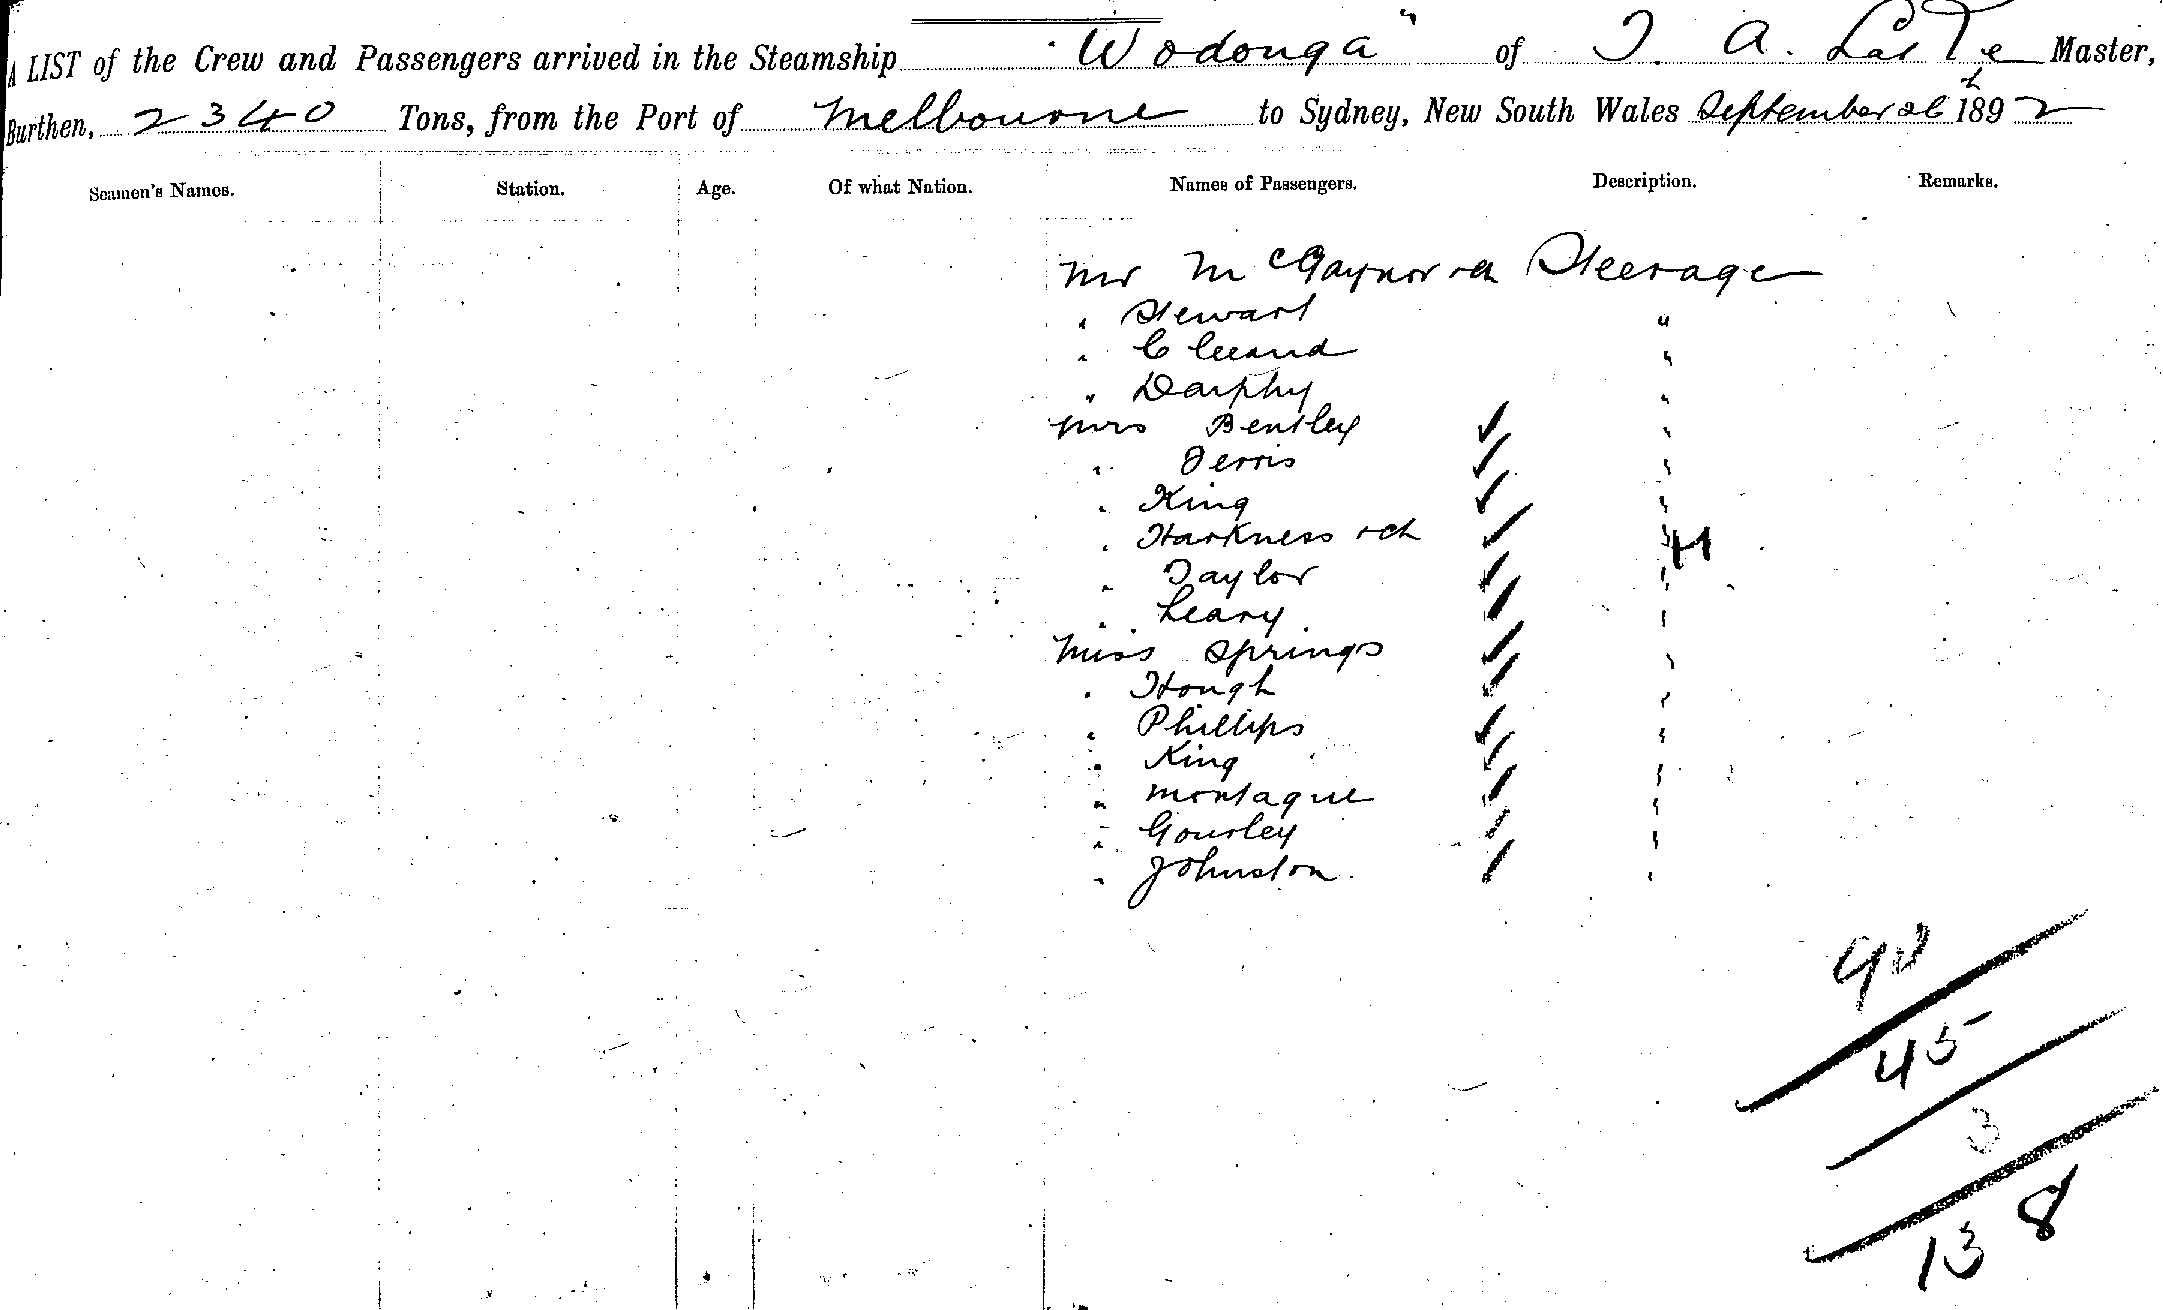 A LIST of the Crew and Passengers arrived in the Steamship "Wodonga" of T. A. Lashe Master,
Burthen, 2340 Tons, from the Port of Melbourne to Sydney, New South Wales September 26th 1892
Seamen's Names. Station. Age. Of what Nation. Names of Passengers. Description. Remarks.
Mr McGaynor + ch Steerage
" Stewart "
" "
" Darphy "
Mrs Bentley "
" Ferris "
" King "
" Harkness + ch "
" Taylor "
" Leary "
Miss Springs "
" Hough "
" Phillips "
" King "
" Montague "
" Gourley "
" Johnston. "
90
45
3
138